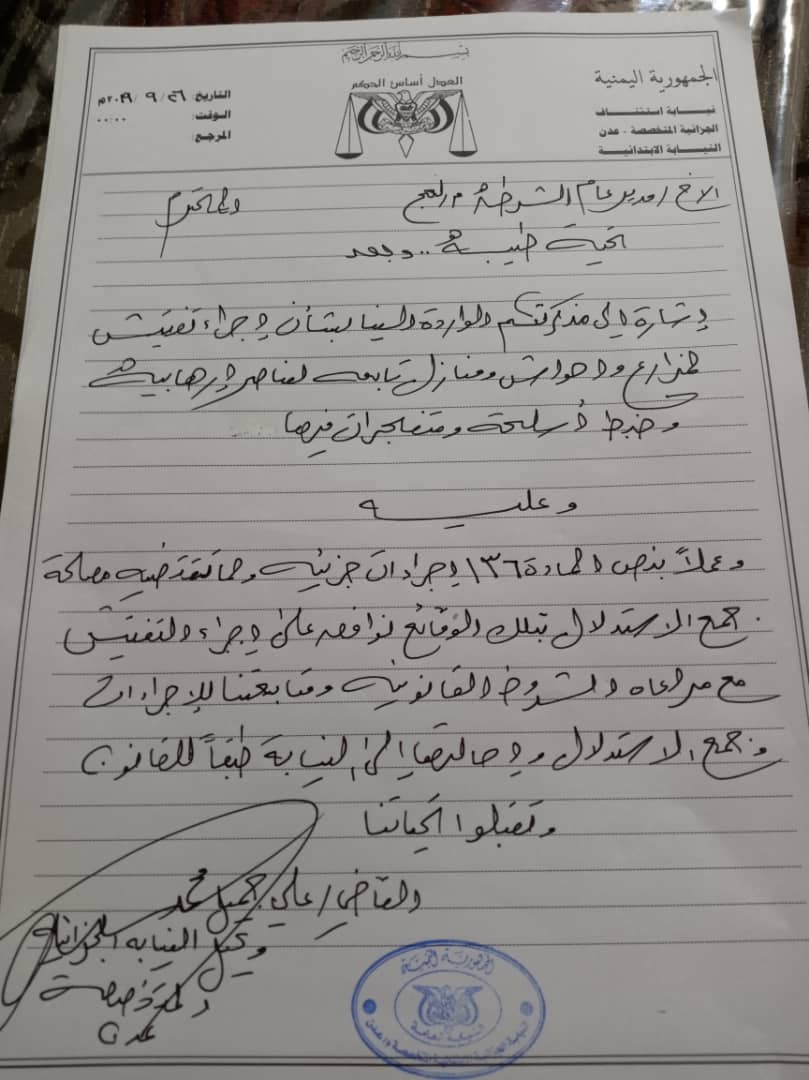 بسم الله الرحمن الرحيم
الجمهورية اليمنية
نيابة استئناف
الجزائية المتخصصة - عدن
النيابة الابتدائية
العدل أساس الحكم
التاريخ: ٢٦ / ٩ / ٢٠١٩م
الوقت: ٠٠:٠٠
المرجع:
الاخ / مدير عام الشرطة م/لحج المحترم
تحية طيبة .. وبعد
إشارة إلى مذكرتكم الواردة إلينا بشأن إجراء تفتيش
لمزارع واحواش ومنازل تابعه لعناصر إرهابيه
وضبط أسلحة ومتفجرات فيها
وعليه
وعملاً بنص المادة ١٣٦ إجراءات جزئيه وما تقتضيه مصلحة
جمع الاستدلال بتلك الوقائع نوافق على إجراء التفتيش
مع مراعاه الشروط القانونيه ومتابعتنا للإجراءات
وجمع الاستدلال وإحالتها إلى النيابة طبقاً للقانون
وتقبلوا تحياتنا
القاضي / علي جميل محمد
وكيل النيابه الجزائيه
المتخصصة
عدن
الجمهورية اليمنية